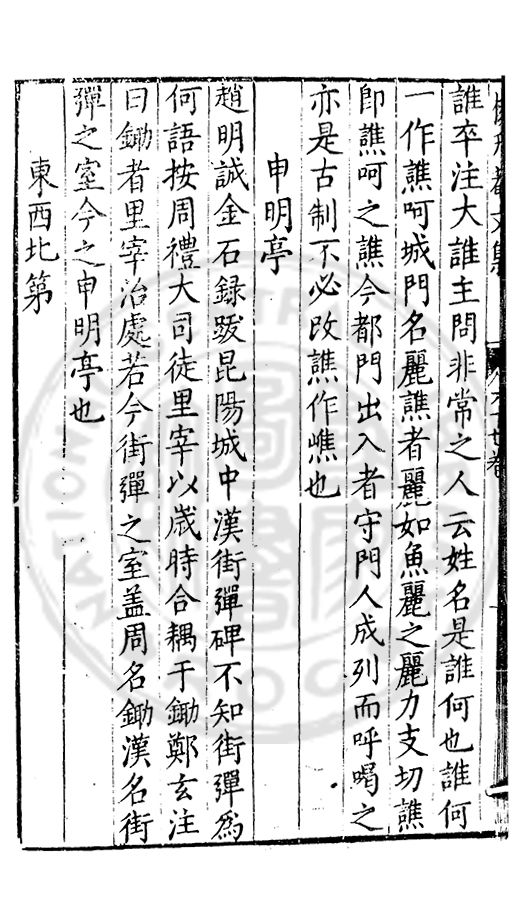 誰卒注大誰主問非常之人云姓名是誰何也誰何
一作譙呵城門名麗譙者麗如魚麗之麗力支切譙
即譙呵之譙今都門出入者守門人成列而呼喝之
亦是古制不必改譙作嶕也
申明亭
趙明誠金石錄跋昆陽城中漢街彈碑不知街彈為
何語按周禮大司徒里宰以歲時合耦于鋤鄭玄注
曰鋤者里宰治處若今街彈之室盖周名鋤漢名街
彈之室今之申明亭也
東西北第